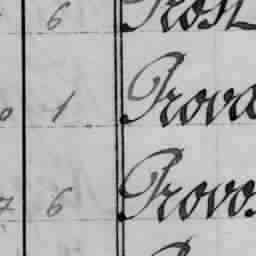 6 Prost
0 1 Prova
7 6 Provo